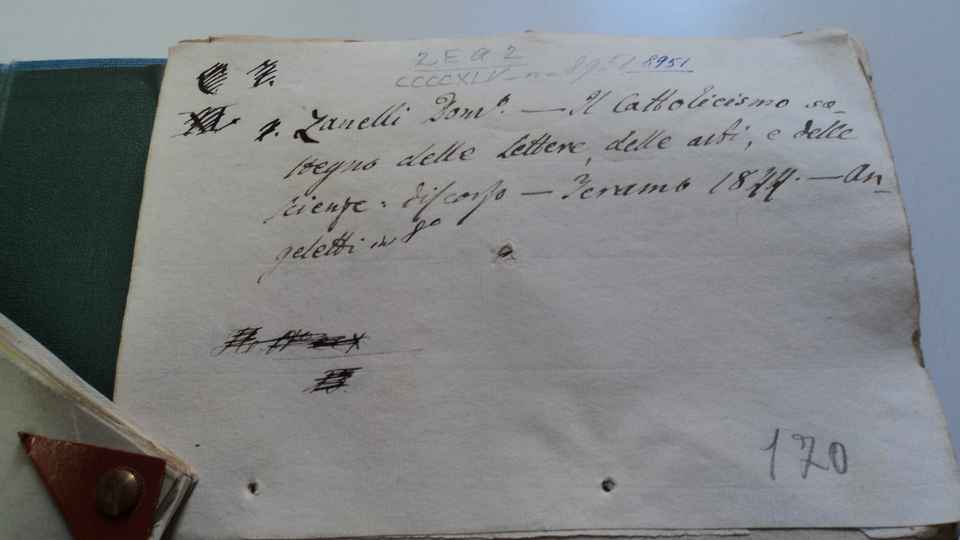 Z E a 2
CCCCXLV - n - 8951 8951
Zanelli Dom.º — Il Cattolicismo so-
stegno delle Lettere, delle arti, e delle
scienze = discorso — Teramo 1877. — An-
geletti in 8º
170